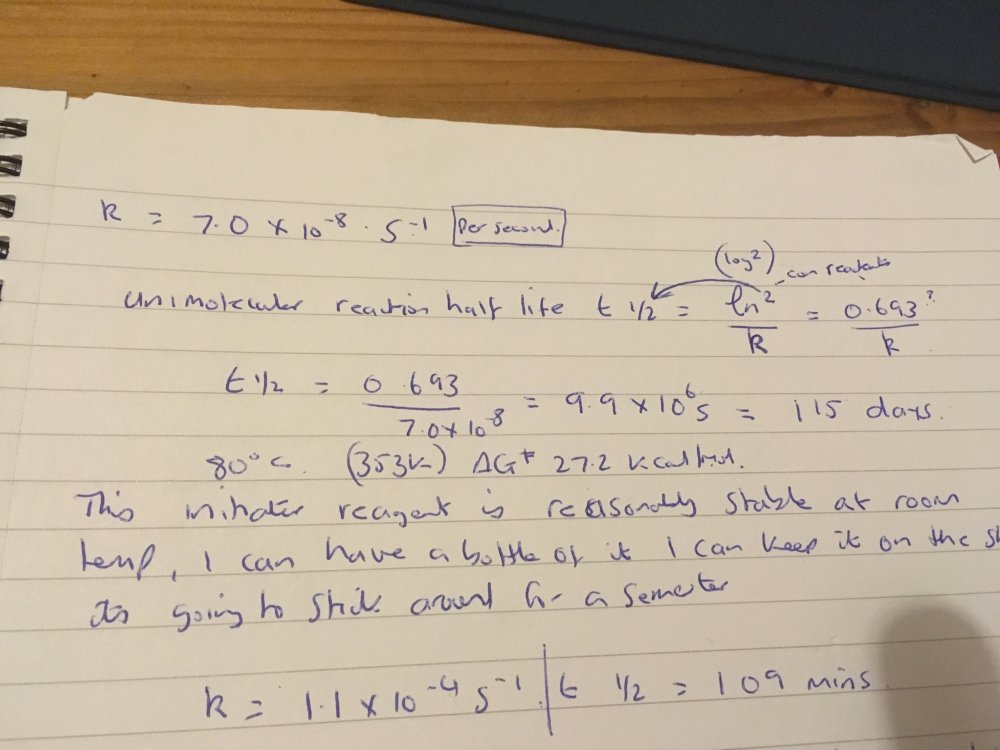 k = 7.0 × 10⁻⁸ · S⁻¹ Per second.
(log²)
unimolecular reaction half life t ½ = ln² / k = 0.693? / k
t ½ = 0.693 / 7.0 × 10⁻⁸ = 9.9 × 10⁶ s = 115 days.
80°C. (353K) ΔG‡ 27.2 kcal/mol.
This initiator reagent is reasonably stable at room
temp, I can have a bottle of it I can keep it on the
its going to stick around for a semester
k = 1.1 × 10⁻⁴ S⁻¹ | t ½ = 109 mins